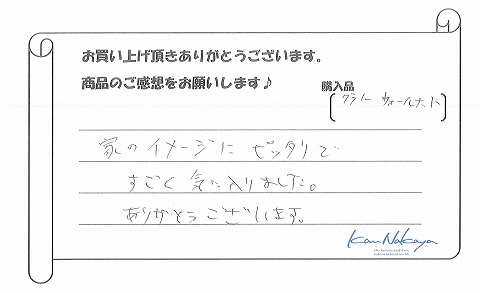 お買い上げ頂きありがとうございます。
商品のご感想をお願いします♪
購入品
ウォールナット
家のイメージに ピッタリで
すごく 気に入りました。
ありがとうございます。
KanNakaya